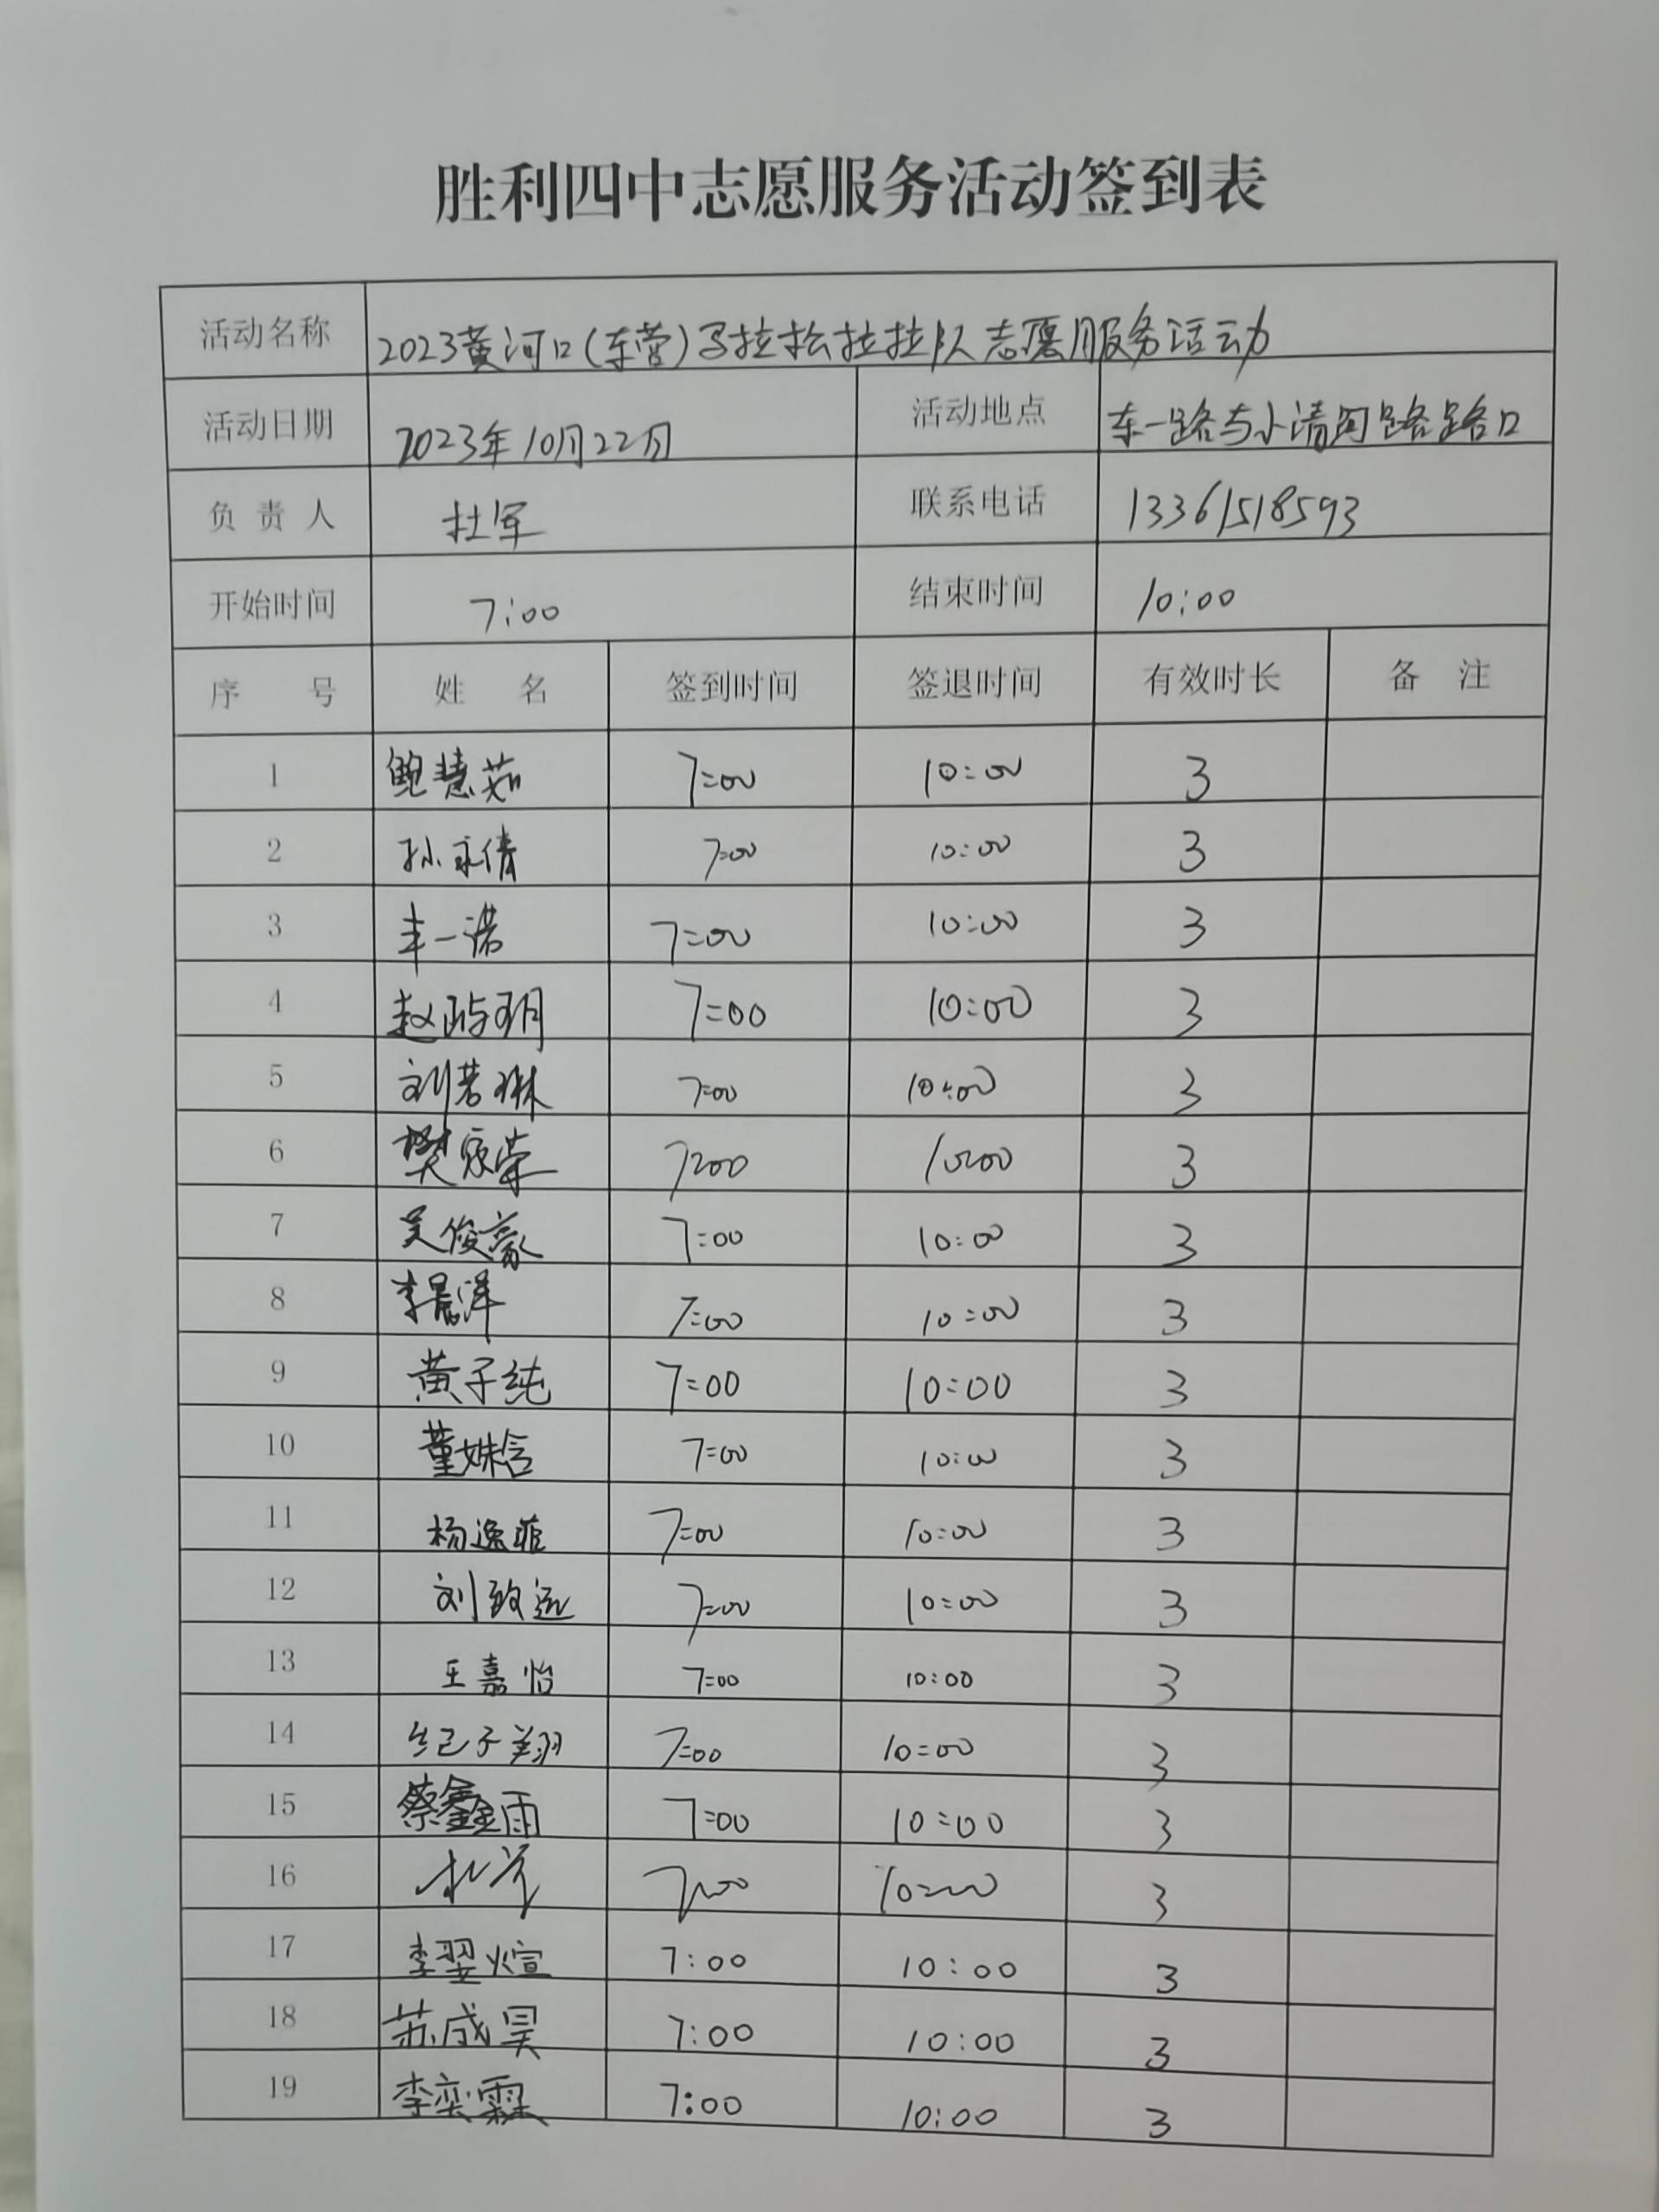 胜利四中志愿服务活动签到表
活动名称 2023黄河口(东营)马拉松拉拉队志愿服务活动
活动日期 2023年10月22日 活动地点 东一路与小清河路路口
负责人 杜军 联系电话 13361518593
开始时间 7:00 结束时间 10:00
序号 姓名 签到时间 签退时间 有效时长 备注
1 鲍慧茹 7:00 10:00 3
2 孙永倩 7:00 10:00 3
3 丰一诺 7:00 10:00 3
4 赵玙玥 7:00 10:00 3
5 刘若琳 7:00 10:00 3
6 樊家荣 7:00 10:00 3
7 吴俊豪 7:00 10:00 3
8 李晨洋 7:00 10:00 3
9 黄子纯 7:00 10:00 3
10 董姝含 7:00 10:00 3
11 杨逸菲 7:00 10:00 3
12 刘致远 7:00 10:00 3
13 王嘉怡 7:00 10:00 3
14 纪子翔 7:00 10:00 3
15 蔡鑫雨 7:00 10:00 3
16 7:00 10:00 3
17 李翌煊 7:00 10:00 3
18 苏成昊 7:00 10:00 3
19 李奕霖 7:00 10:00 3